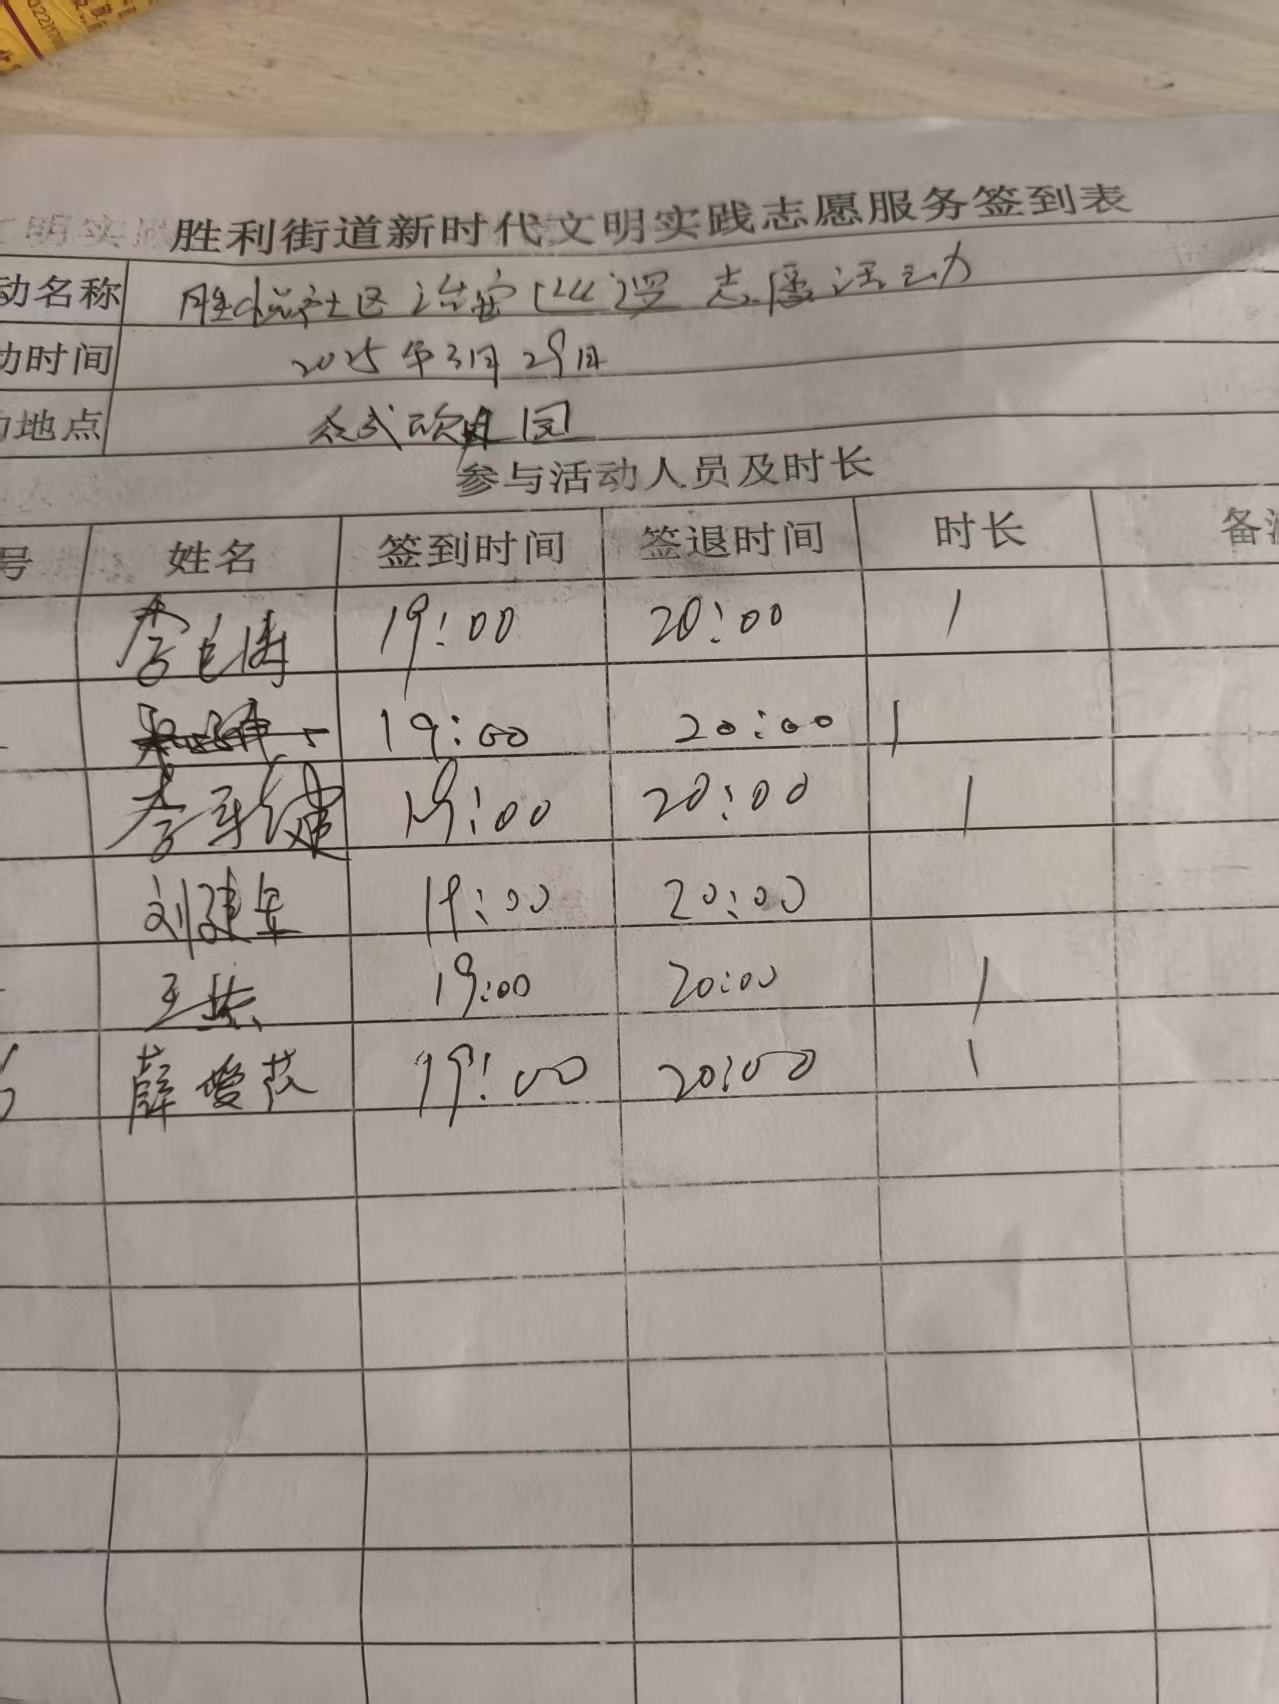 胜利街道新时代文明实践志愿服务签到表
动名称 胜悦社区治安巡逻志愿活动
动时间 2025年3月29日
地点 园
参与活动人员及时长
号 姓名 签到时间 签退时间 时长 备
19:00 20:00 1
19:00 20:00 1
李 19:00 20:00 1
刘建军 19:00 20:00
王 19:00 20:00 1
薛爱 19:00 20:00 1